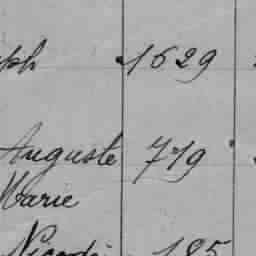 ph 1629
Auguste 779
Marie
Nicod 185